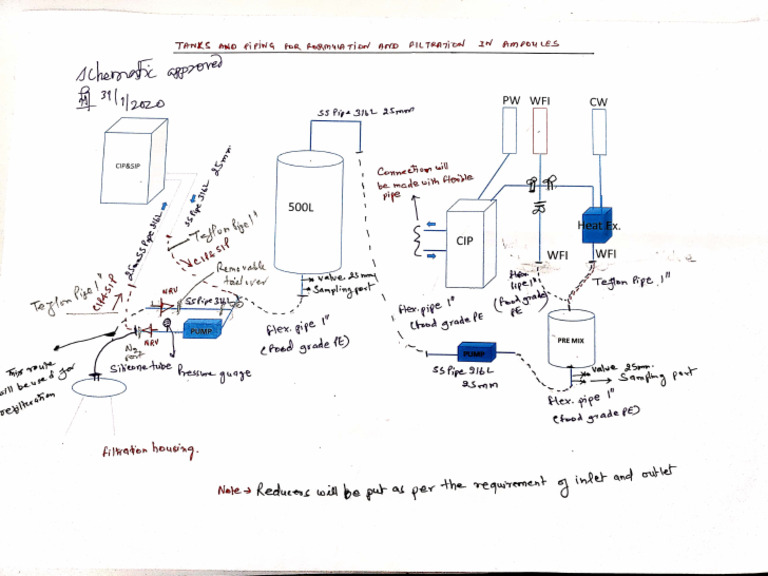 TANKS AND PIPING FOR FORMULATION AND FILTRATION IN AMPOULES
Schematic approved
31/1/2020
SS Pipe 316L 25mm
PW WFI CW
CIP&SIP
500L
Connection will
be made with flexible
pipe
CIP
Heat Ex.
WFI
WFI
25mm SS Pipe 316L
SS Pipe 316L 25mm
Teflon Pipe 1"
CIP& SIP
Removable
Teflon Pipe 1"
CIP& SIP
NRV
SS Pipe 316L
valve 25mm
Sampling port
Flex. pipe 1"
(food grade PE)
Flex. pipe 1"
(food grade PE
Flex.
pipe 1"
(food grade
PE
Teflon Pipe 1"
PRE MIX
PUMP
NRV
N2
Silicone tube
Pressure guage
This route
will be used for
refilteration
PUMP
SS Pipe 316L
25mm
valve 25mm.
Sampling port
flex. pipe 1"
(food grade PE)
filtration housing.
Note → Reducers will be put as per the requirement of inlet and outlet